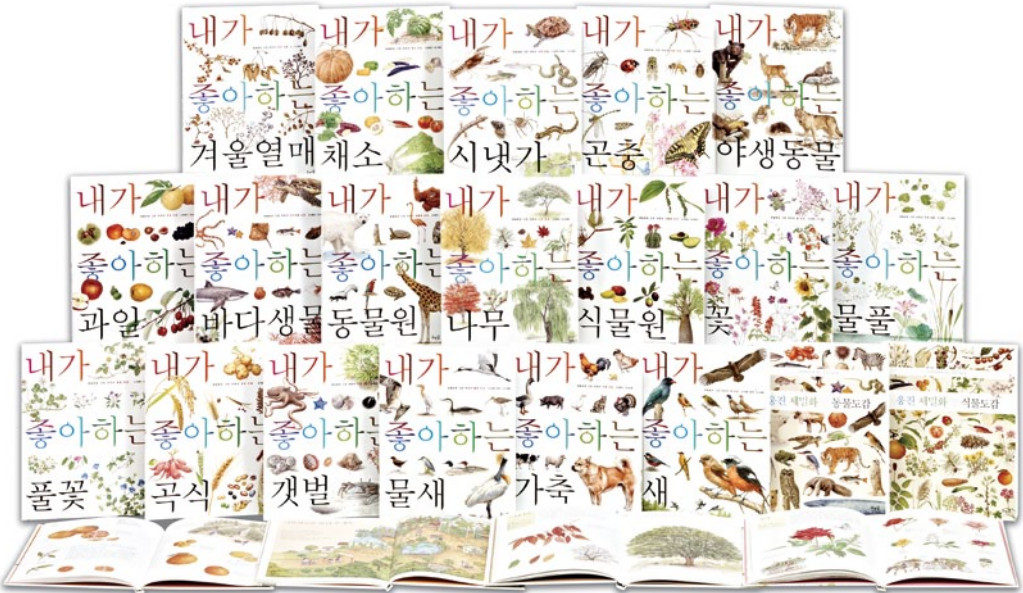 내가
좋아하는
겨울열매
내가
좋아하는
채소
내가
좋아하는
시냇가
내가
좋아하는
곤충
내가
좋아하는
야생동물
내가
좋아하는
과일
내가
좋아하는
바다생물
내가
좋아하는
동물원
내가
좋아하는
나무
내가
좋아하는
식물원
내가
좋아하는
꽃
내가
좋아하는
물풀
내가
좋아하는
풀꽃
내가
좋아하는
곡식
내가
좋아하는
갯벌
내가
좋아하는
물새
내가
좋아하는
가축
내가
좋아하는
새
웅진 세밀화 동물도감
웅진 세밀화 식물도감